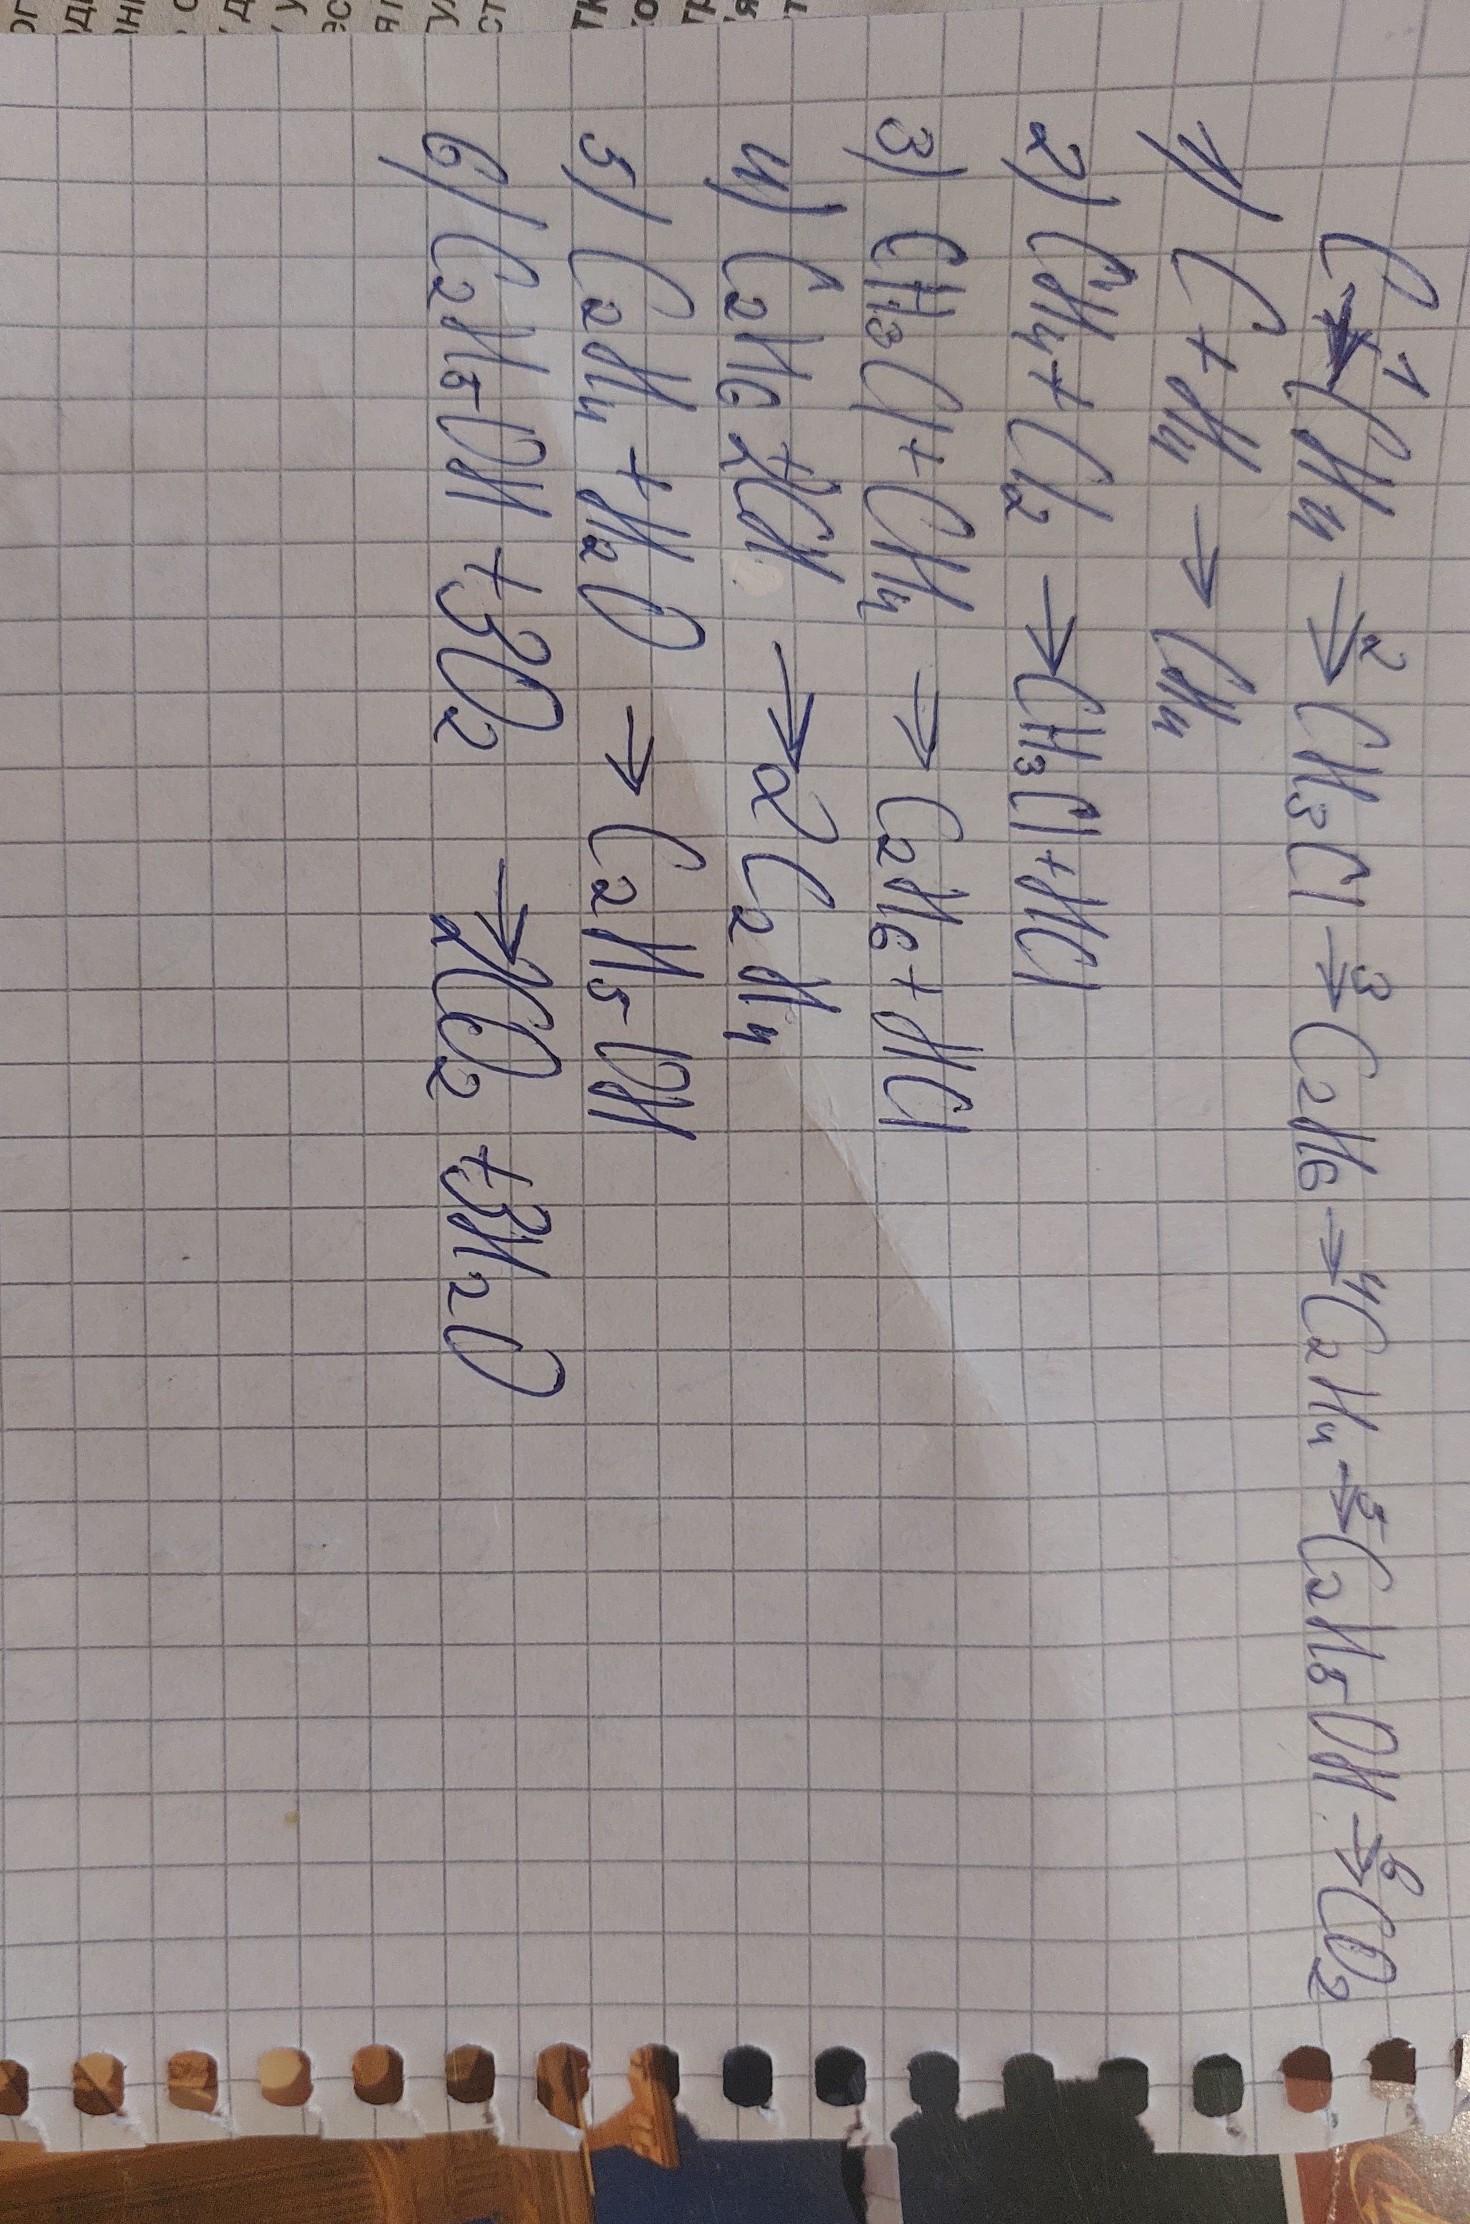 C →¹ CH₄ →² CH₃Cl →³ C₂H₆ →⁴ C₂H₄ →⁵ C₂H₅OH →⁶ CO₂
1) C + H₄ → CH₄
2) CH₄ + Cl₂ → CH₃Cl + HCl
3) CH₃Cl + CH₄ → C₂H₆ + HCl
4) C₂H₆ + 2CH → 2C₂H₄
5) C₂H₄ + H₂O → C₂H₅OH
6) C₂H₅OH + 3O₂ → 2CO₂ + 3H₂O